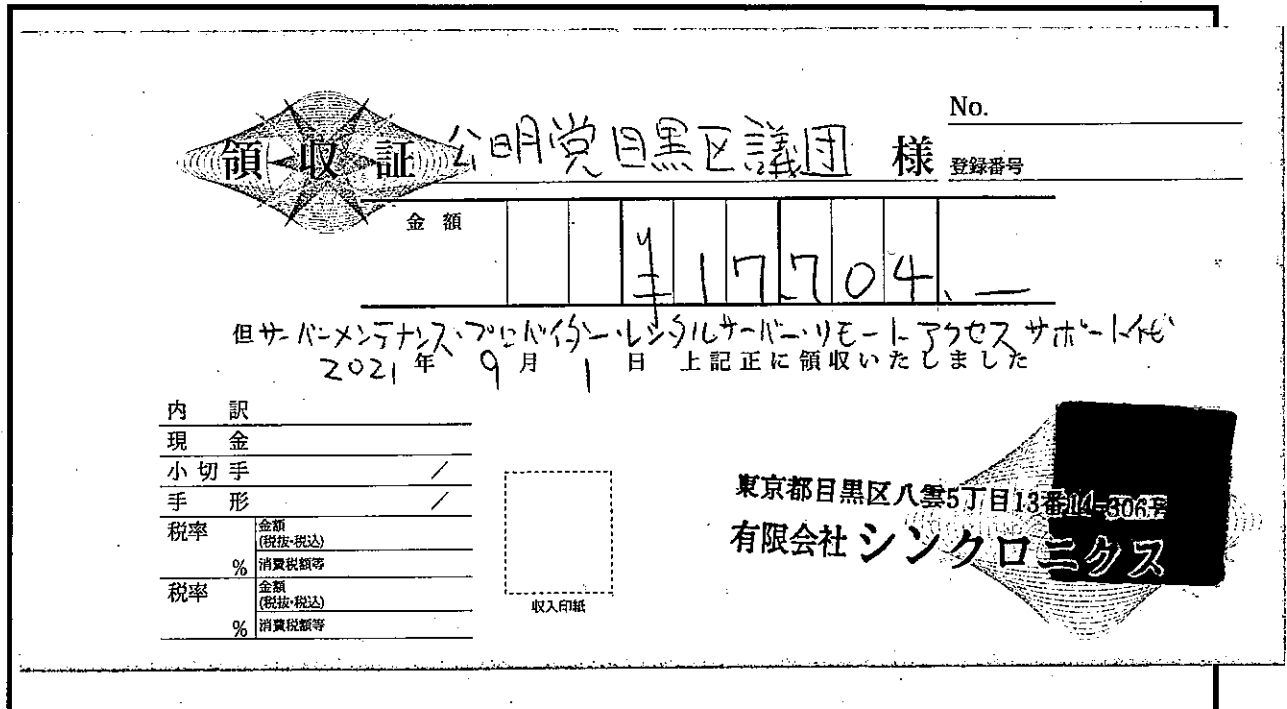 領収証 公明党目黒区議団 様
No.
登録番号
金額 ¥17,704.―
但 サーバーメンテナンス・プロバイダー・レンタルサーバー・リモートアクセスサポート代
2021年 9月 1日 上記正に領収いたしました
内訳
現金
小切手 /
手形 /
税率 % 金額(税抜・税込)
消費税額等
税率 % 金額(税抜・税込)
消費税額等
収入印紙
東京都目黒区八雲5丁目13番14-306号
有限会社 シンクロニクス